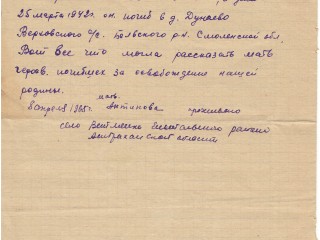 25 марта 1942г. он погиб в д. Дунаево
Верховского с/с. Бельского р.н. Смоленской обл.
Вот все что могла рассказать мать
героев. погибших за освобождение нашей
родины.
мать.
8 апреля 1965г. Антипова проживаю
село Ветлянка Енотаевского района
Астраханской области